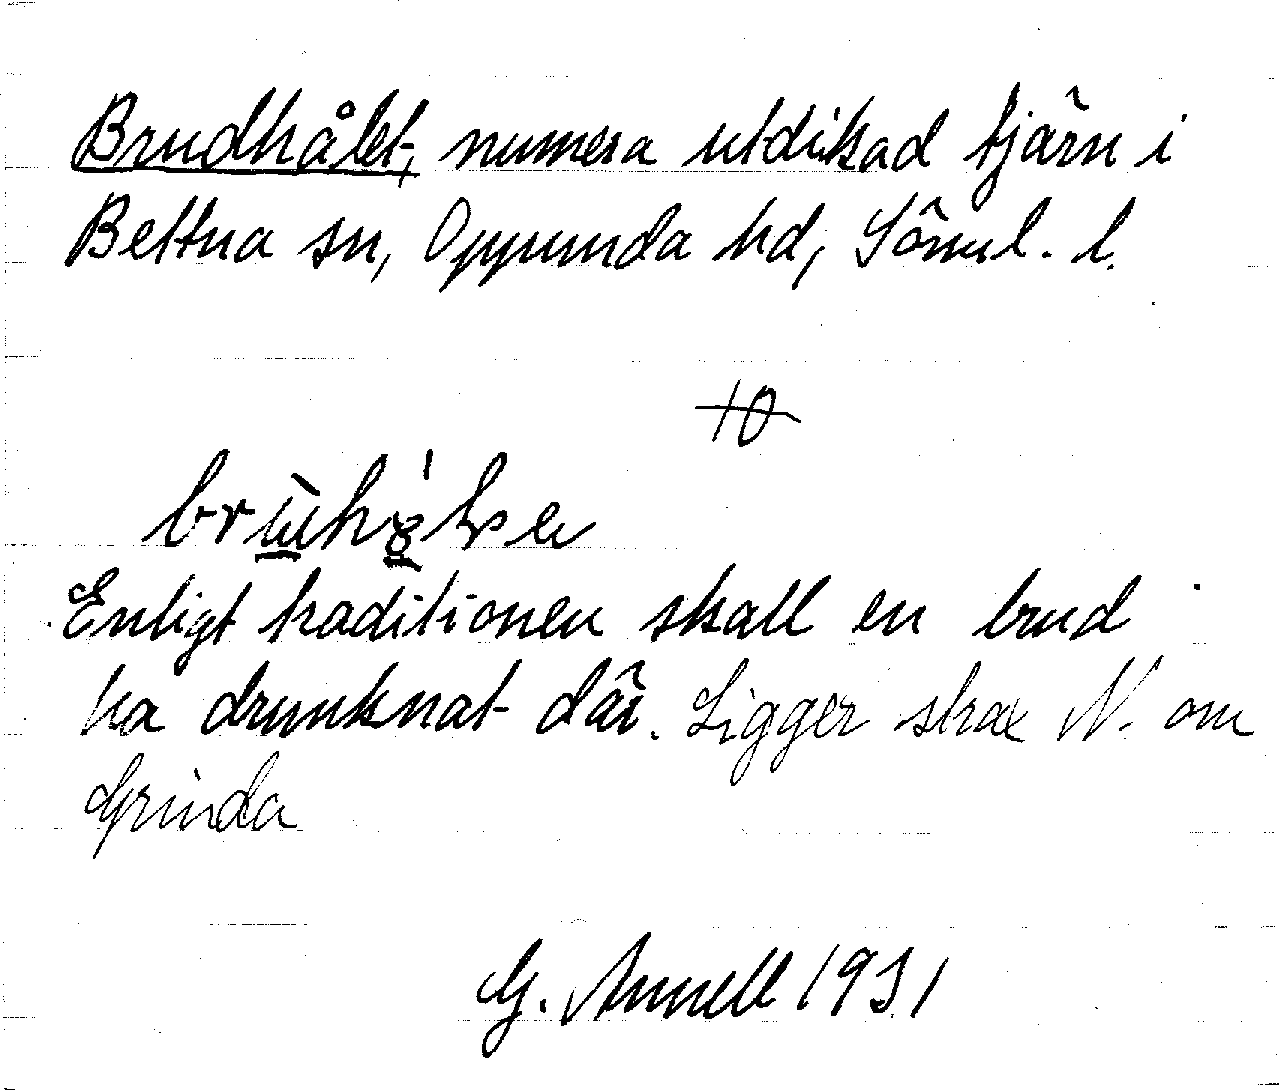 Brudhålet, numera utdikad tjärn i
Bettna sn, Oppunda hd, Söml. l.
10
Enligt traditionen skall en brud
ha drunknat där. Ligger strax N. om
Grinda
G. Annell 1931